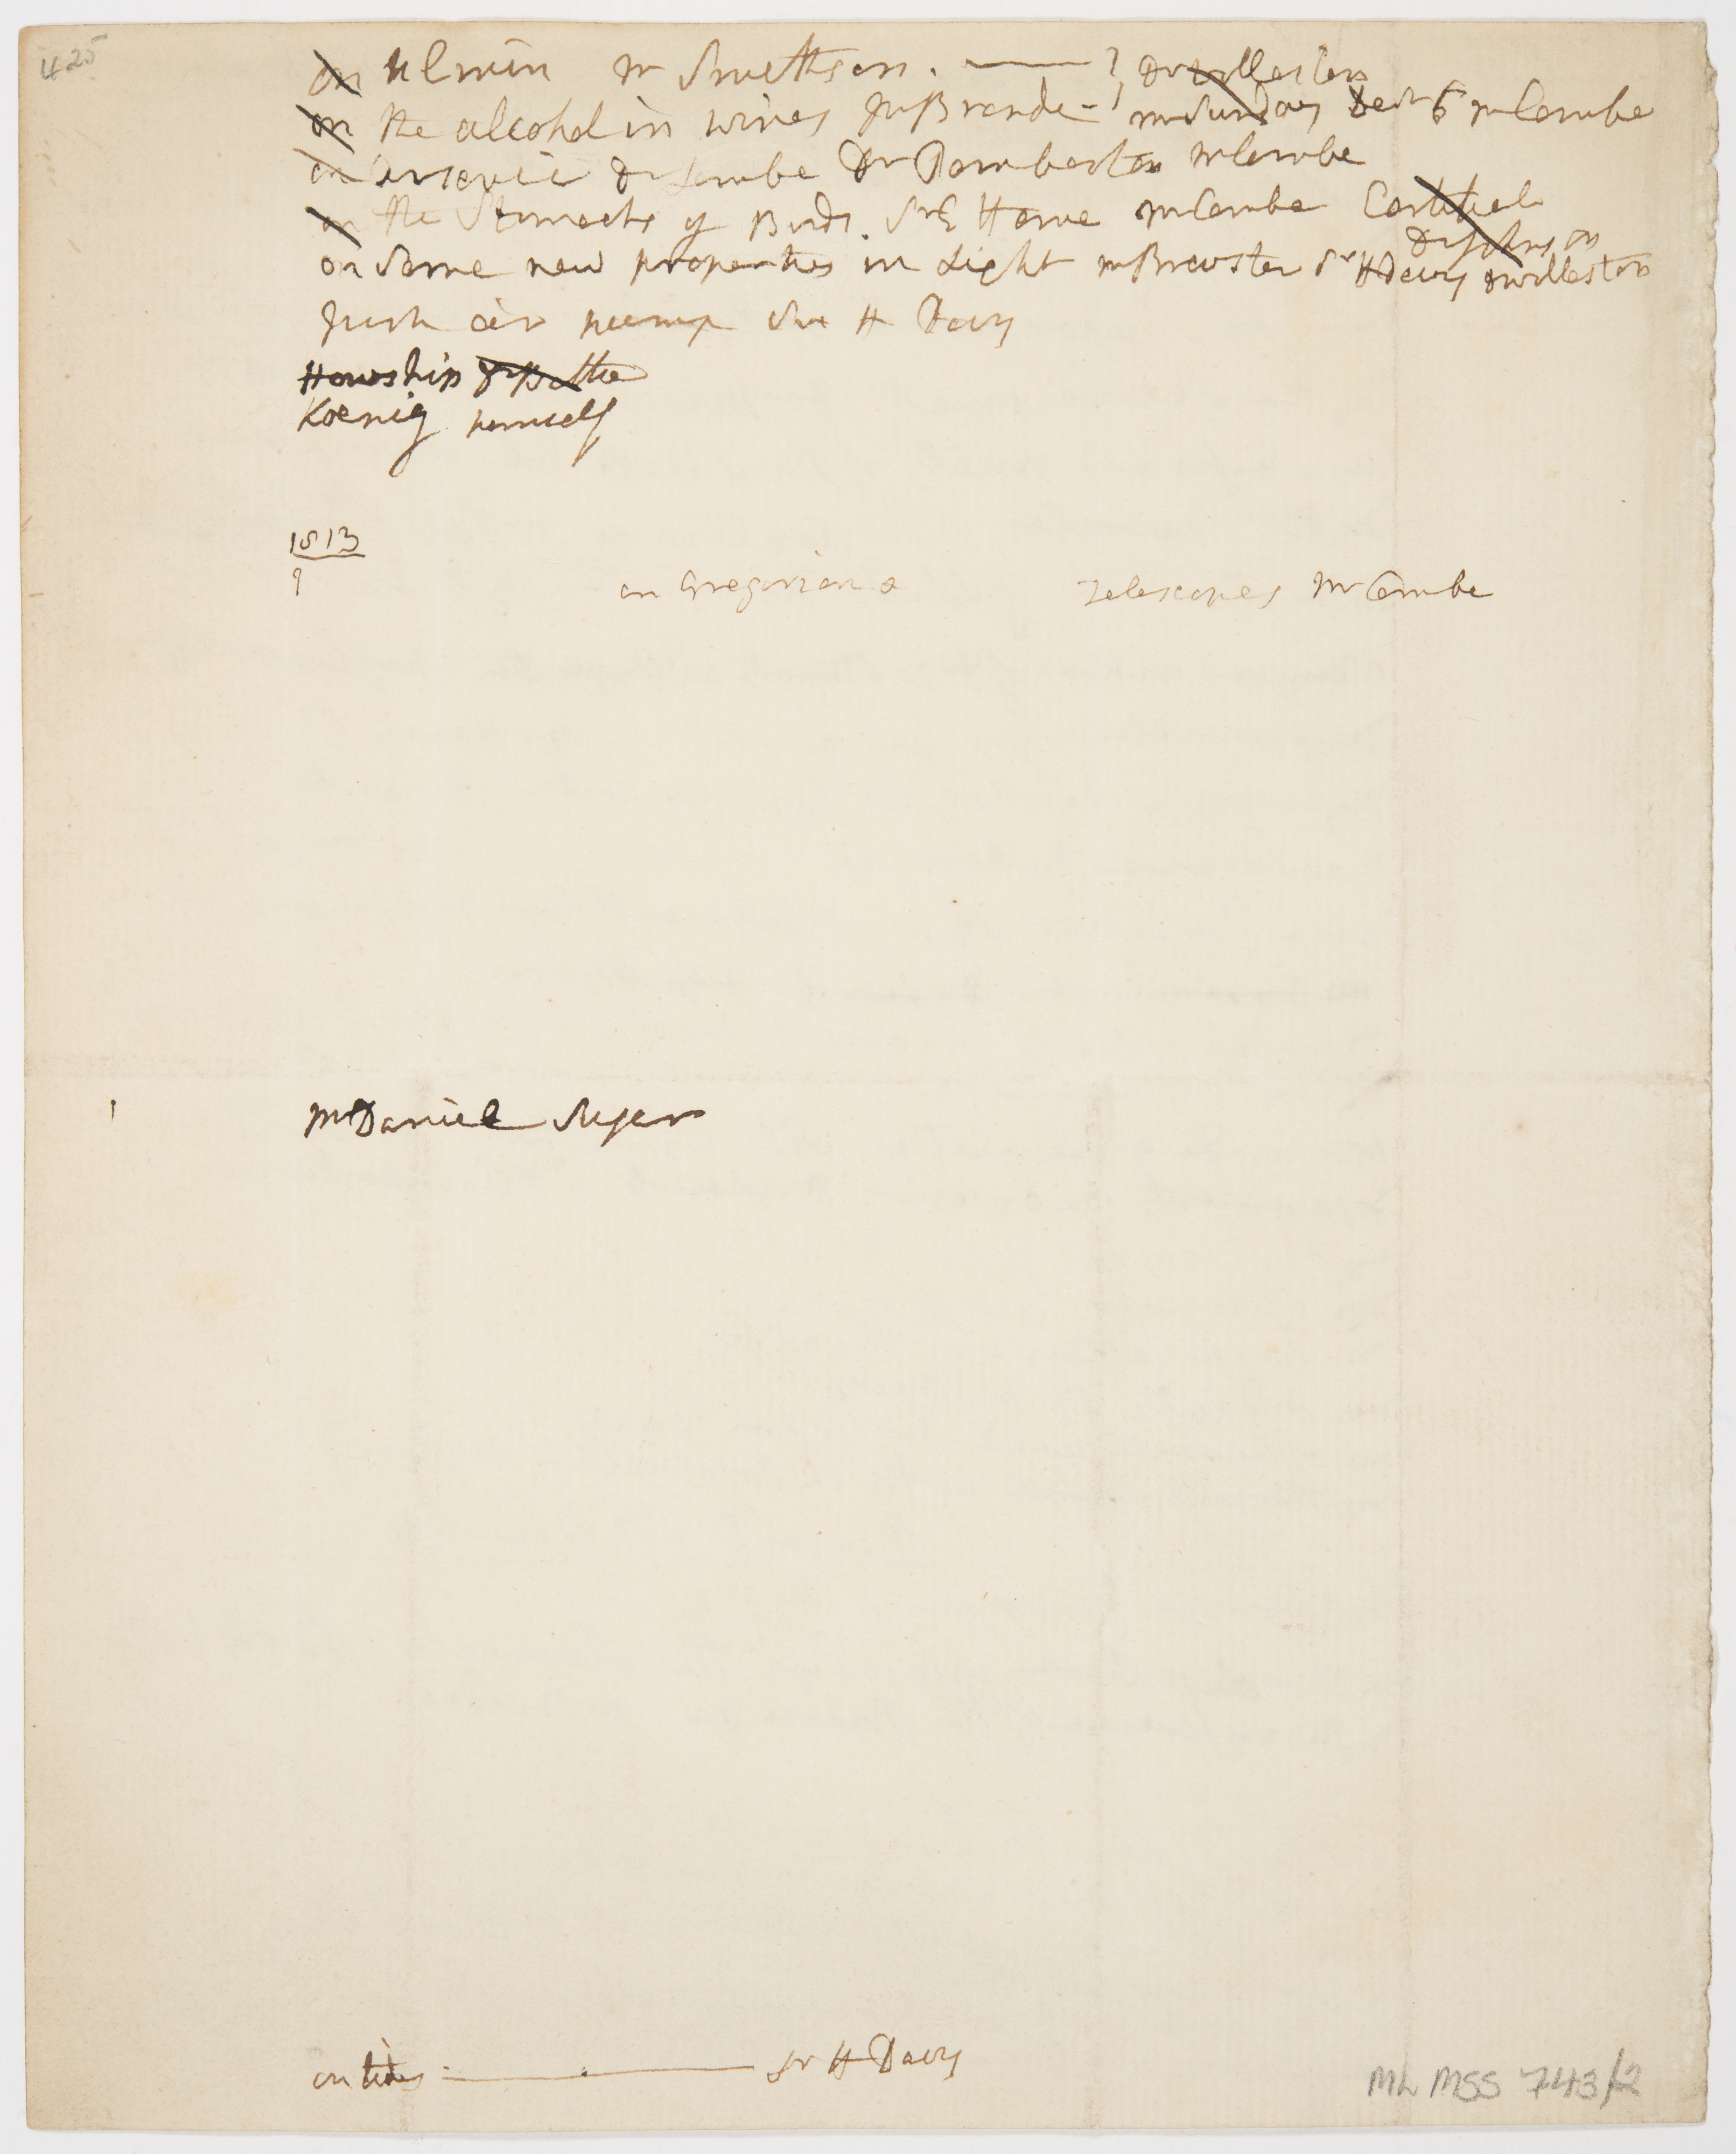 425
on Ulmin Mr Smithson. ——— } Dr Wollaston
on the alcohol in wines Mr Brande - } Mr Sunday Decr 6 Mr Combe
on Arsenic Dr Lambe Dr Pemberton Mr Combe
on the Stomachs of Birds. Sr E Home Mr Combe
Dr Johnson
on Some new properties in Light Mr Brewster Sr H Davy Dr Wollaston
air pump Sir H Davy
Howship
Koenig himself
1813
on Gregorian & Telescopes Mr Combe
Mr Daniel
on tides ——— Sr H Davy
ML MSS 743/2